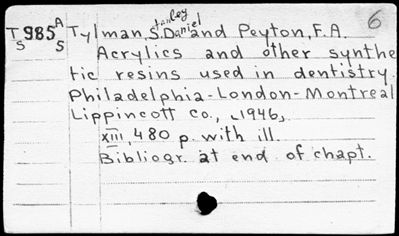 6
T 985 A
S S
Tylman, Stanley Daniel and Peyton, F.A.
Acrylics and other synthe
tic resins used in dentistry.
Philadelphia-London-Montreal
Lippincott Co., [1946]
XIII, 480 p. with ill.
Bibliogr. at end of chapt.